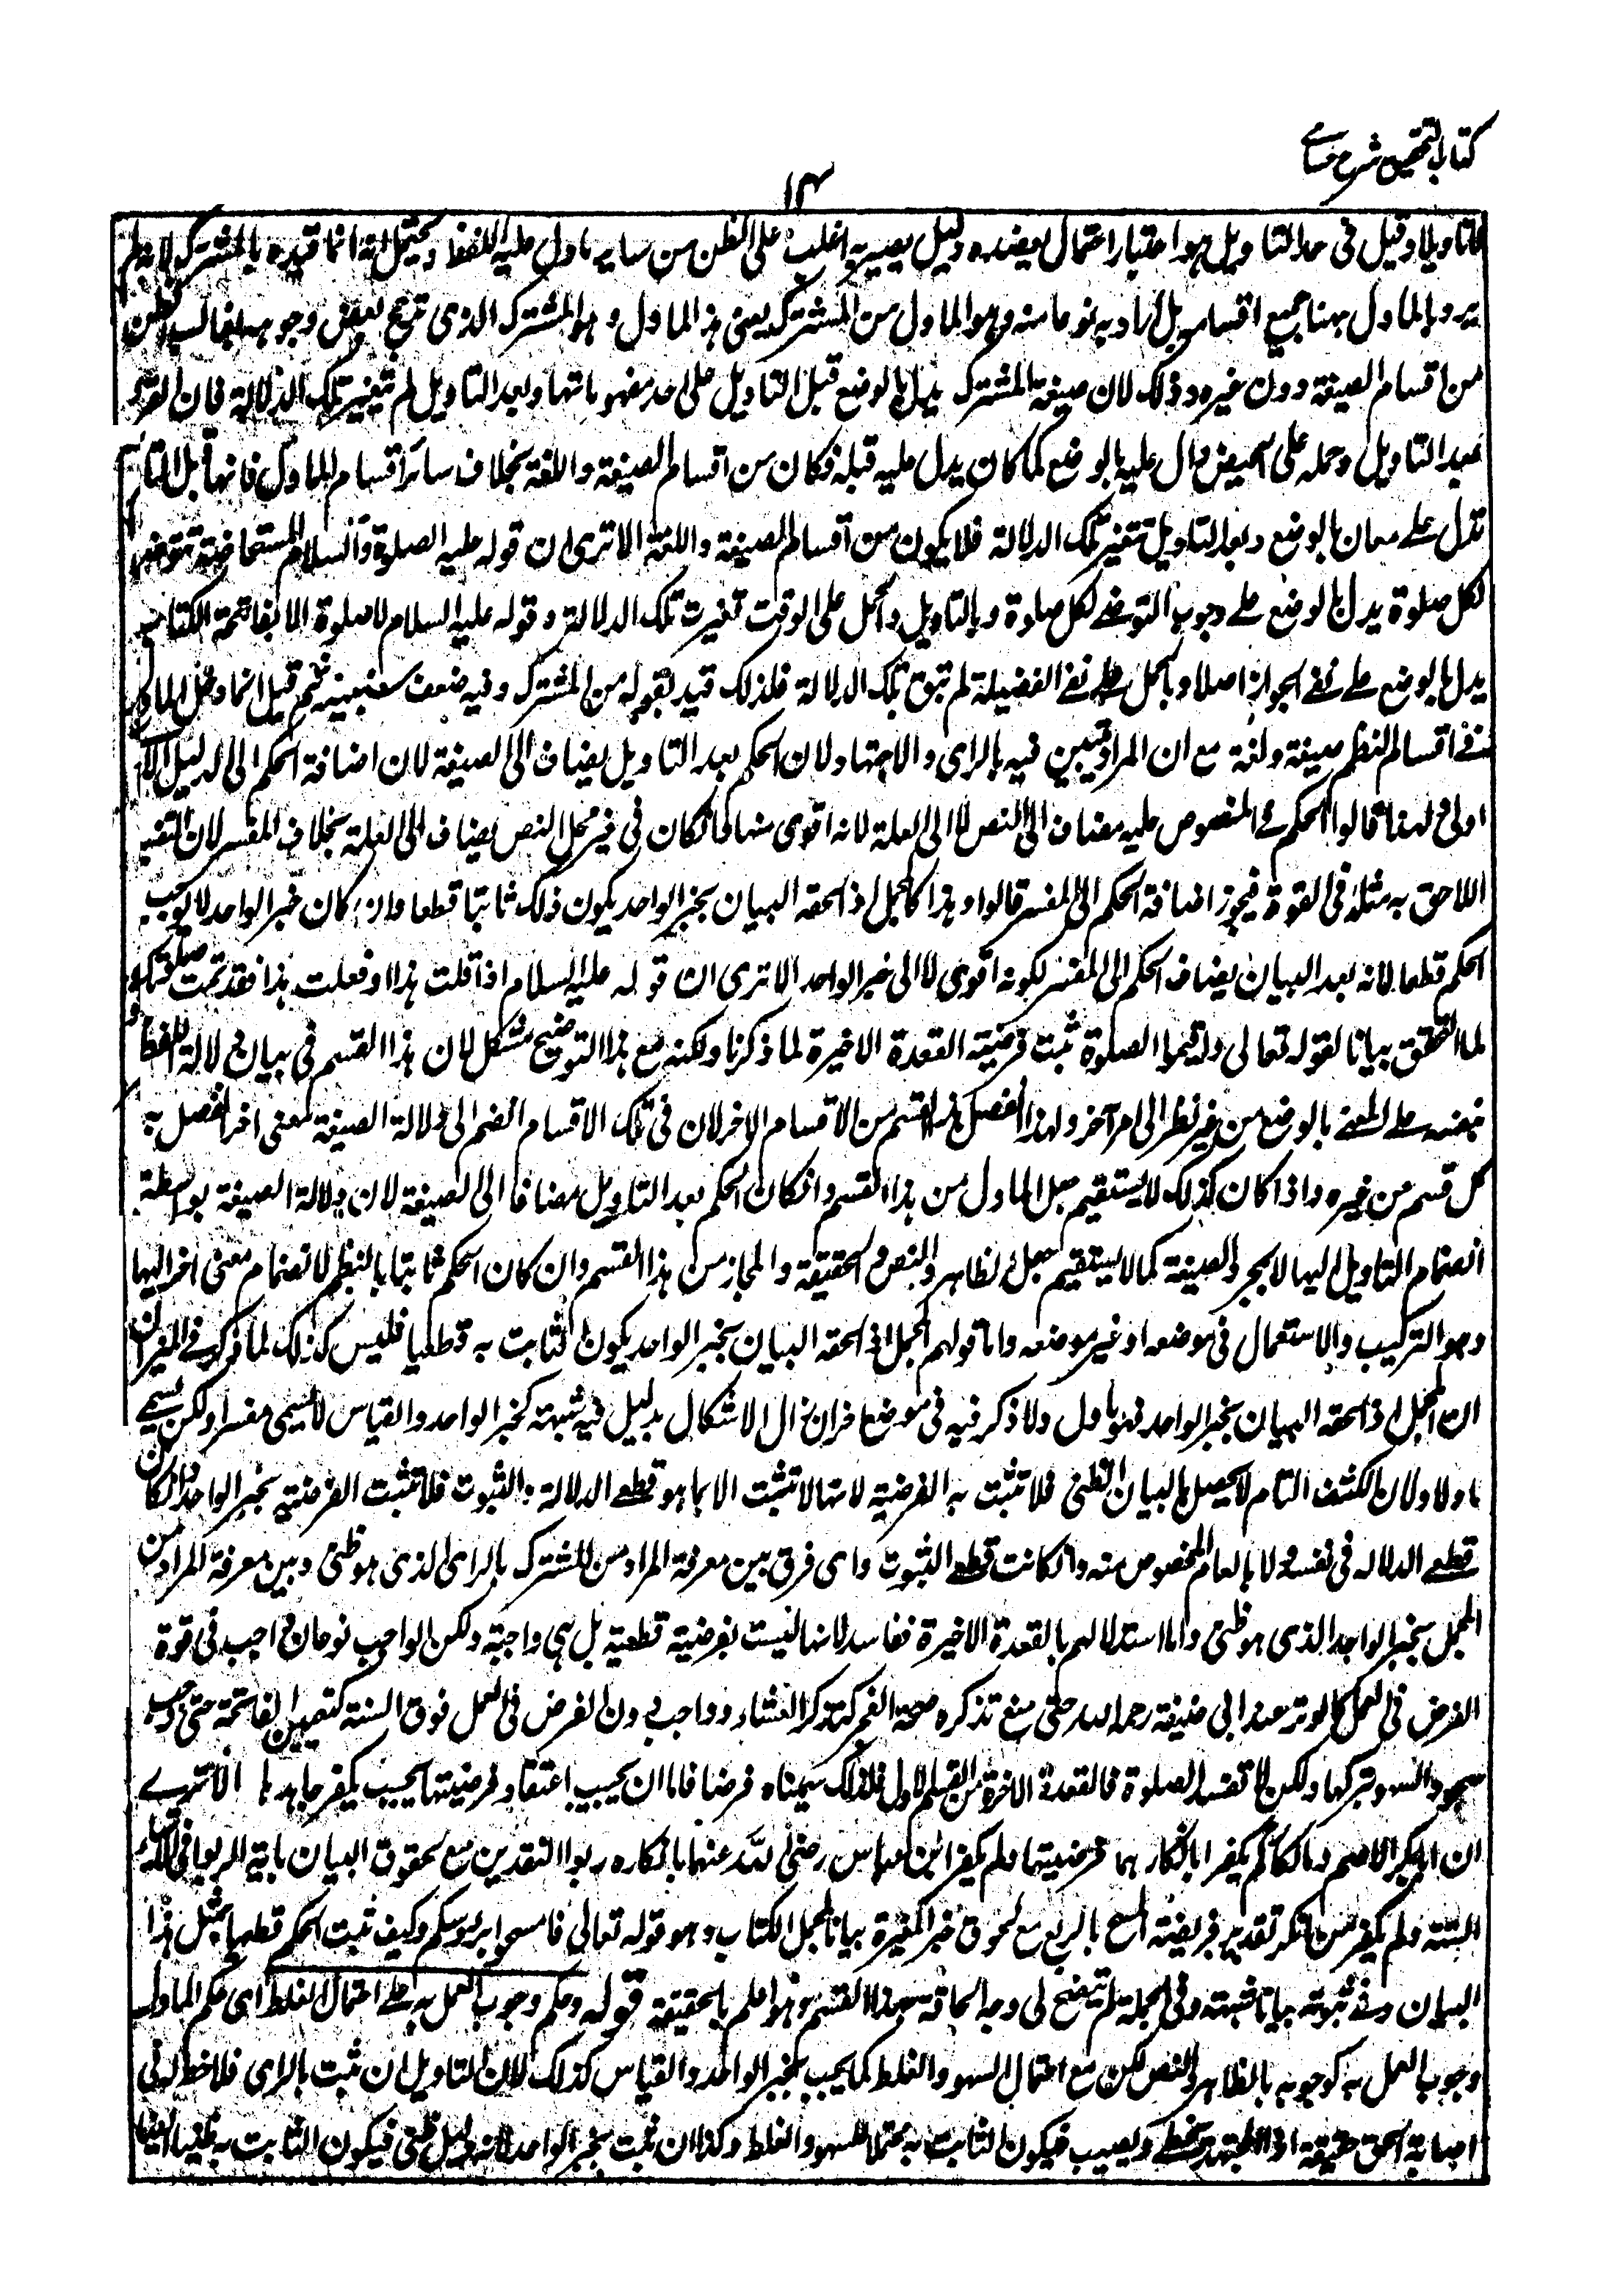 كتاب التحقيق شرح حسامي
١٤
تاويلا وقيل في حد التاويل هو اعتبار احتمال يعضده دليل يصير به اغلب على الظن من سائر ما دل عليه اللفظ ويحتمل انه انما قيده بالمشترك لانه لم
يرد بالماول ههنا جميع اقسامه بل اراد به نوعا منه وهو الماول من المشترك يعني هذا الماول وهو المشترك الذي ترجح بعض وجوهه بغالب الظن
من اقسام الصيغة دون غيره وذلك لان صيغة المشترك يدل بالوضع قبل التاويل على احد مفهوماتها وبعد التاويل لم تتغير تلك الدلالة فان القرء
بعد التاويل وحمله على الحيض دال عليه بالوضع كما كان يدل عليه قبله فكان من اقسام الصيغة واللغة بخلاف سائر اقسام الماول فانها قبل التاويل
تدل على معان بالوضع وبعد التاويل تتغير تلك الدلالة فلا يكون من اقسام الصيغة واللغة الا ترى ان قوله عليه الصلوة والسلام المستحاضة تتوضأ
لكل صلوة يدل بالوضع على وجوب التوضي لكل صلوة وبالتاويل والحمل على الوقت تغيرت تلك الدلالة وقوله عليه السلام لا صلوة الا بفاتحة الكتاب
يدل بالوضع على نفي الجواز اصلا وبالحمل على نفي الفضيلة لم تبق تلك الدلالة فلذلك قيد بقوله من المشترك وفيه ضعف سنبينه ثم قيل انما دخل الماول
في اقسام النظم صيغة ولغة مع ان المراد تبين فيه بالراى والاجتهاد لان الحكم بعد التاويل يضاف الى الصيغة لان اضافة الحكم الى الدليل الا
اولى ولهذا قالوا الحكم في المنصوص عليه مضاف الى النص لا الى العلة لانه اقوى منها وان كان في غير محل النص يضاف الى العلة بخلاف المفسر لان التفسير
اللاحق به مثله في القوة فيجوز اضافة الحكم الى المفسر قالوا وهذا كالمجمل اذا لحقه البيان بخبر الواحد يكون ذلك ثابتا قطعا وان كان خبر الواحد لا يوجب
الحكم قطعا لانه بعد البيان يضاف الحكم الى المفسر لكونه اقوى لا الى خبر الواحد الا ترى ان قوله عليه السلام اذا قلت هذا او فعلت هذا فقد تمت صلوتك
لما التحق بيانا لقوله تعالى واقيموا الصلوة ثبت فرضية القعدة الاخيرة لما ذكرنا ولكنه مع هذا التوضيح مشكل لان هذا القسم في بيان دلالة اللفظ
بنفسه على المعنى بالوضع من غير نظر الى امر آخر ولهذا انفصل هذا القسم من الاقسام الاخر لان في تلك الاقسام انضم الى دلالة الصيغة معنى اخر انفصل به
كل قسم من غيره واذا كان كذلك لا يستقيم جعل الماول من هذا القسم وان كان الحكم بعد التاويل مضافا الى الصيغة لان دلالة الصيغة بواسطة
انضمام التاويل اليها لا بمجرد الصيغة كما لا يستقيم جعل الظاهر والنص والحقيقة والمجاز من هذا القسم وان كان الحكم ثابتا بالنظم لانضمام معنى اخر اليها
وهو التركيب والاستعمال في موضعه او غير موضعه واما قولهم المجمل اذا لحقه البيان بخبر الواحد يكون الثابت به قطعيا فليس كذلك لما ذكر في الميزان
ان المجمل اذا لحقه البيان بخبر الواحد فهو ماول ولما ذكر فيه في موضع اخر ان زال الاشكال بدليل فيه شبهة كخبر الواحد والقياس لا يسمى مفسرا ولكن يسمى
ماولا ولان الكشف التام لا يحصل بالبيان الظني فلا تثبت به الفرضية لانها لا تثبت الا بما هو قطعي الدلالة والثبوت فلا تثبت الفرضية بخبر الواحد وان كان
قطعي الدلالة في نفسه ولا بالعام المخصوص منه وان كانت قطعي الثبوت واى فرق بين معرفة المراد من المشترك بالراى الذي هو ظني وبين معرفة المراد من
المجمل بخبر الواحد الذي هو ظني واما استدلالهم بالقعدة الاخيرة ففاسد لانها ليست بفرضية قطعية بل هي واجبة ولكن الواجب نوعان واجب في قوة
الفرض في العمل كالوتر عند ابي حنيفة رحمه الله حتى منع تذكره صحة الفجر كتذكر العشاء وواجب دون الفرض في العمل فوق السنة كتعيين الفاتحة حتى وجب
سجود السهو بتركها ولكن لا تفسد الصلوة فالقعدة الاخيرة من القسم الاول فلذلك سميناه فرضا فاما ان يجب اعتقاد فرضيتها بحيث يكفر جاحدها الا ترى
ان ابا بكر الاصم ومالكا لم يكفرا بانكارهما فرضيتها ولم يكفر ابن عباس رضي الله عنهما بانكاره ربوا النقدين مع لحوق البيان باية الربوا في الاشياء
الستة ولم يكفر من انكر تقدير فريضة المسح بالربع مع لحوق خبر المغيرة بيانا لمجمل الكتاب وهو قوله تعالى فامسحوا برؤسكم وكيف ثبت الحكم قطعيا بمثل هذا
البيان وفي ثبوته بيانا شبهة وفي الجملة لم يتضح لي وجه الحاقه بهذا القسم وهو اعلم بالحقيقة قوله وحكمه وجوب العمل به على احتمال الغلط اى حكم الماول
وجوب العمل به كوجوبه بالظاهر والنص لكن مع احتمال السهو والغلط كما يجب بخبر الواحد والقياس كذلك لان التاويل ان ثبت بالراى فلا حظ له في
اصابة الحق حقيقة اذ المجتهد يخطي ويصيب فيكون الثابت به محتملا للسهو والغلط وكذا ان ثبت بخبر الواحد لانه دليل ظني فيكون الثابت به ظنيا ايضا